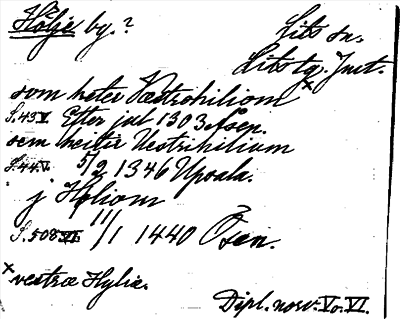 Hölje by.? Eids sn.
Eids tg. Jmt.
som heter Væstrohiliom x
S.43 V. Efter jul 1303 Åsen.
sem heitir Vestrihilium
S.44 V. 5/2 1346 Upsala.
j Høliom
S.508 VI. 11/1 1440 Åsen.
x vestræ Hylia.
Dipl. norv. V o. VI.